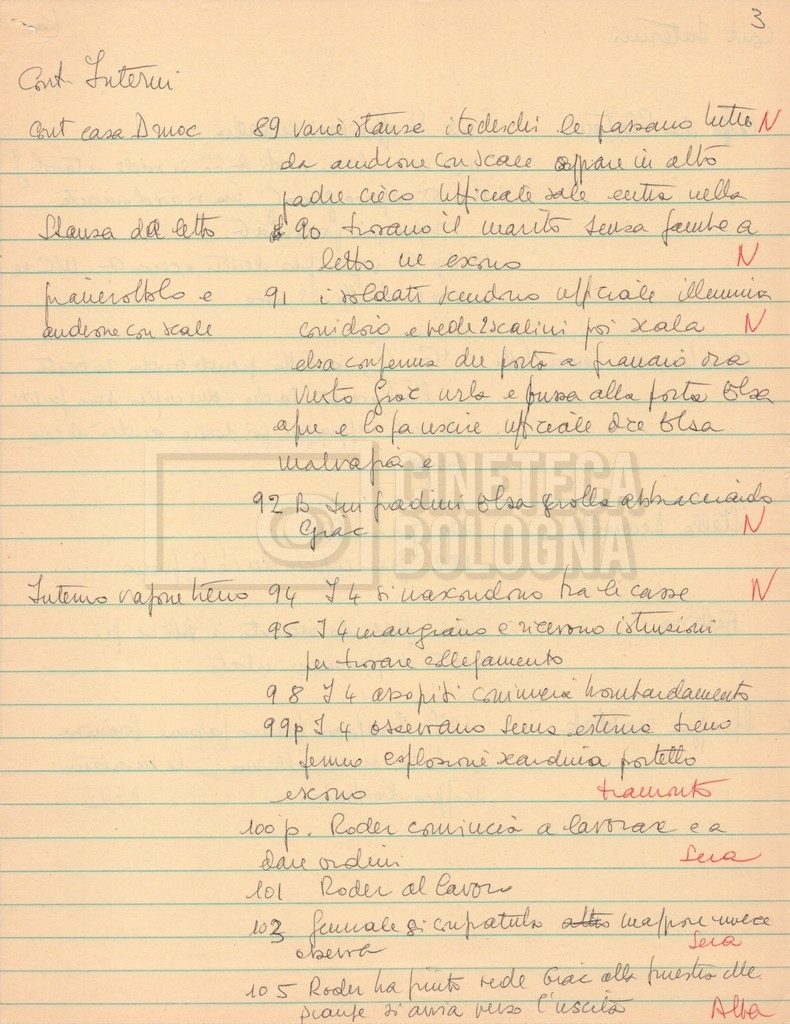 3
Cont. Interni
Cont casa Dmoc 89 varie stanze i tedeschi le passano tutte N
da androne con scale appare in alto
padre cieco ufficiale sale entra nella
Stanza da letto 90 trovano il marito senza gambe a
letto ne escono N
e 91 i soldati scendono ufficiale illumina
androne con scale corridoio e vede 2 scalini poi scala N
elsa conferma che porta a granaio ora
vuoto Grac urla e bussa alla porta Elsa
apre e lo fa uscire ufficiale dice Elsa
malvagia e
92 B sui gradini Elsa crolla abbracciando
Grac N
CINETECA
BOLOGNA
Interno vagone treno 94 I 4 si nascondono tra le casse N
95 I 4 mangiano e ricevono istruzioni
per trovare collegamento
98 I 4 assopiti comincia bombardamento
99p I 4 osservano scena esterna treno
fermo esplosione scardina portello
escono tramonto
100 p. Roder comincia a lavorare e a
dare ordini Sera
101 Roder al lavoro
103 Generale si congratula maggiore invece
osserva Sera
105 Roder ha finito vede Grac alla finestra che
piange si avvia verso l'uscita Alba